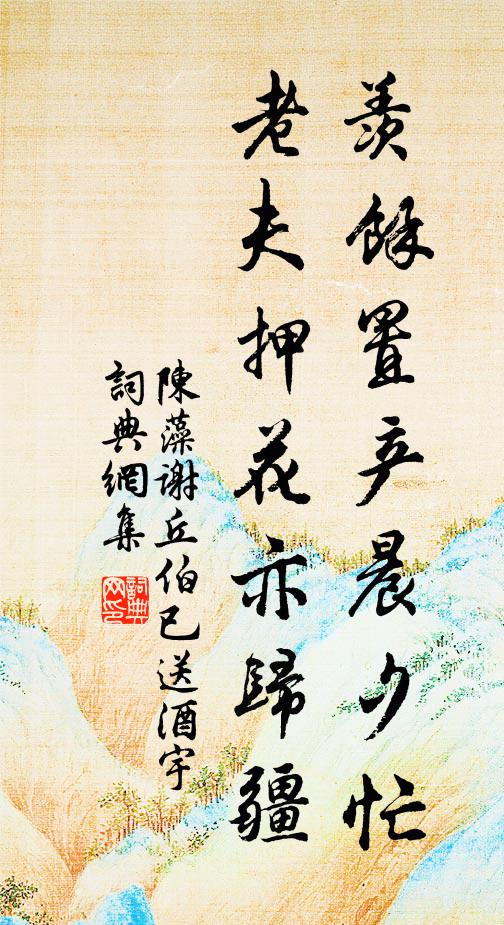 羨餘置产晨夕忙
老夫押花亦歸疆
陳藻谢丘伯已送酒字
詞典網集
詞典网印